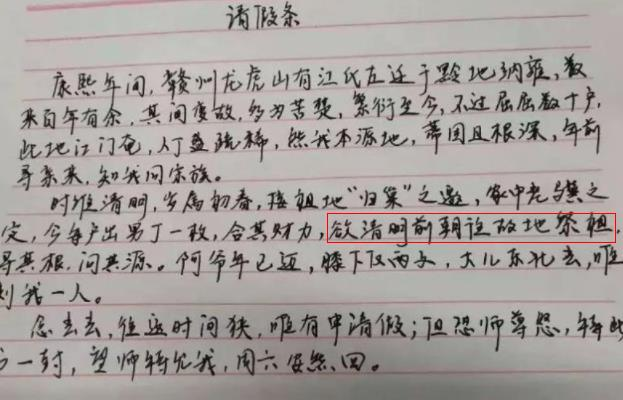 请假条
康熙年间，赣州龙虎山有江氏左迁于黔地纳雍，数
来百年有余，其间变故，多为苦楚，繁衍至今，不过屈屈数十户，
此地江门奄，人丁益疏稀，然我本源地，蒂固且根深，年前
寻亲来，知我同宗族。
时维清明，岁属初春，接祖地“归巢”之邀，家中老
定，今每户出男丁一枚，合其财力，欲清明前朝往故地祭祖，
寻其根，问其源。阿爷年已迈，膝下仅两子，大儿东北去，唯
剩我一人。
念去去，往返时间狭，唯有申请假；但恐师尊怒，特此
一封，望师特允我，周六安然回。